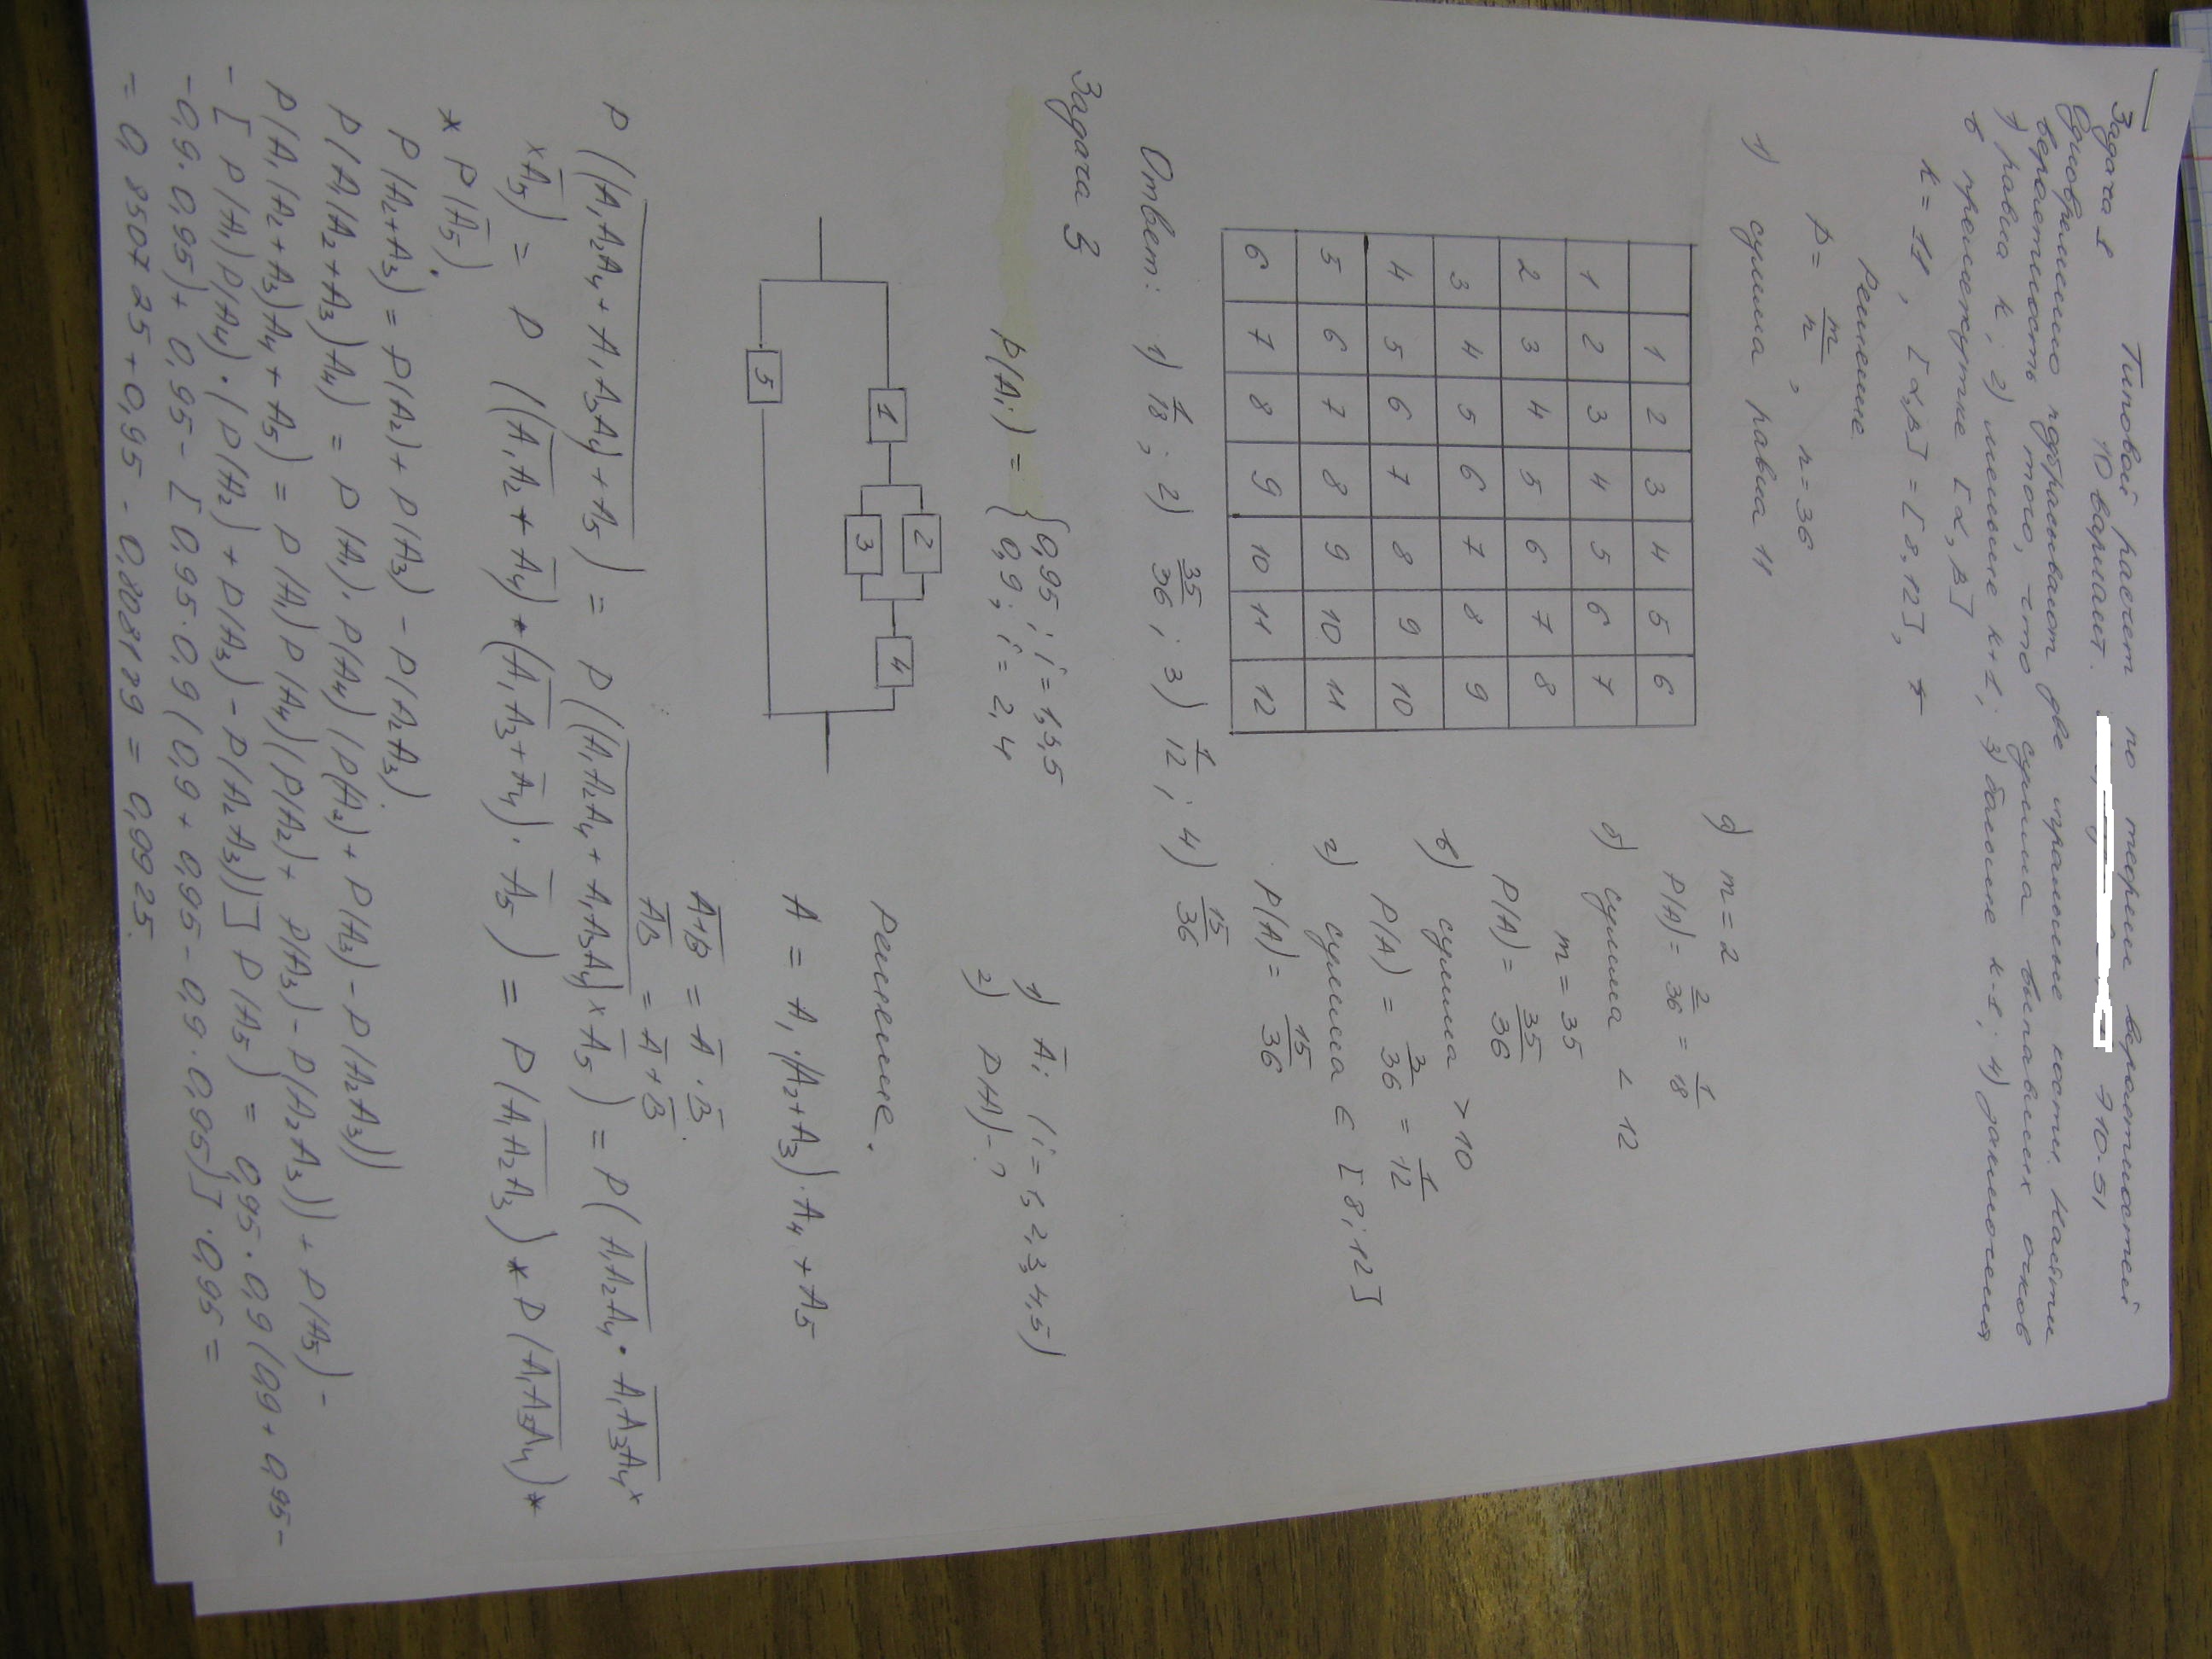 Типовой расчет по теории вероятностей
10 вариант. 710-51
Задача 1
Одновременно подбрасывают две игральные кости. Найти
вероятность того, что сумма выпавших очков
1) равна k; 2) меньше k+1; 3) больше k-1; 4) заключена
в промежутке [α, β]
k=11, [α,β]=[8,12],
Решение
P= m/n, n=36
1) сумма равна 11
а) m=2
P(A)= 2/36 = 1/18
б) сумма < 12
m=35
P(A)= 35/36
в) сумма >10
P(A) = 3/36 = 1/12
г) сумма ∈ [8;12]
P(A)= 15/36
1 2 3 4 5 6
1 2 3 4 5 6 7
2 3 4 5 6 7 8
3 4 5 6 7 8 9
4 5 6 7 8 9 10
5 6 7 8 9 10 11
6 7 8 9 10 11 12
Ответ: 1) 1/18; 2) 35/36; 3) 1/12; 4) 15/36
Задача 3
P(Ai) = { 0,95; i=1,3,5
0,9; i=2,4
1) Ai (i=1,2,3,4,5)
2) P(A)-?
1 2 3 4 5
Решение.
A = A₁·(A₂+A₃)·A₄+A₅
A̅+̅B̅ = A̅·B̅.
A̅B̅ = A̅+B̅
P((A₁A₂A₄+A₁A₃A₄)+A₅) = P((A₁A₂A₄+A₁A₃A₄)×A̅₅) = P(A₁A₂A₄·A₁A₃A₄×
×A̅₅) = P((A₁A₂+A̅₄)*(A₁A₃+A̅₄)·A̅₅) = P(A₁A₂A₃)*P(A₁A₃A₄)*
*P(A̅₅).
P(A₂+A₃) = P(A₂)+P(A₃)-P(A₂A₃).
P(A₁(A₂+A₃)A₄) = P(A₁)·P(A₄)(P(A₂)+P(A₃)-P(A₂A₃))
P(A₁(A₂+A₃)A₄+A₅) = P(A₁)P(A₄)(P(A₂)+P(A₃)-P(A₂A₃))+P(A₅)-
-[P(A₁)P(A₄)·(P(A₂)+P(A₃)-P(A₂A₃))]P(A₅) = 0,95·0,9(0,9+0,95-
-0,9·0,95)+0,95-[0,95·0,9(0,9+0,95-0,9·0,95)]·0,95=
= 0,850725+0,95-0,808179=0,9925.